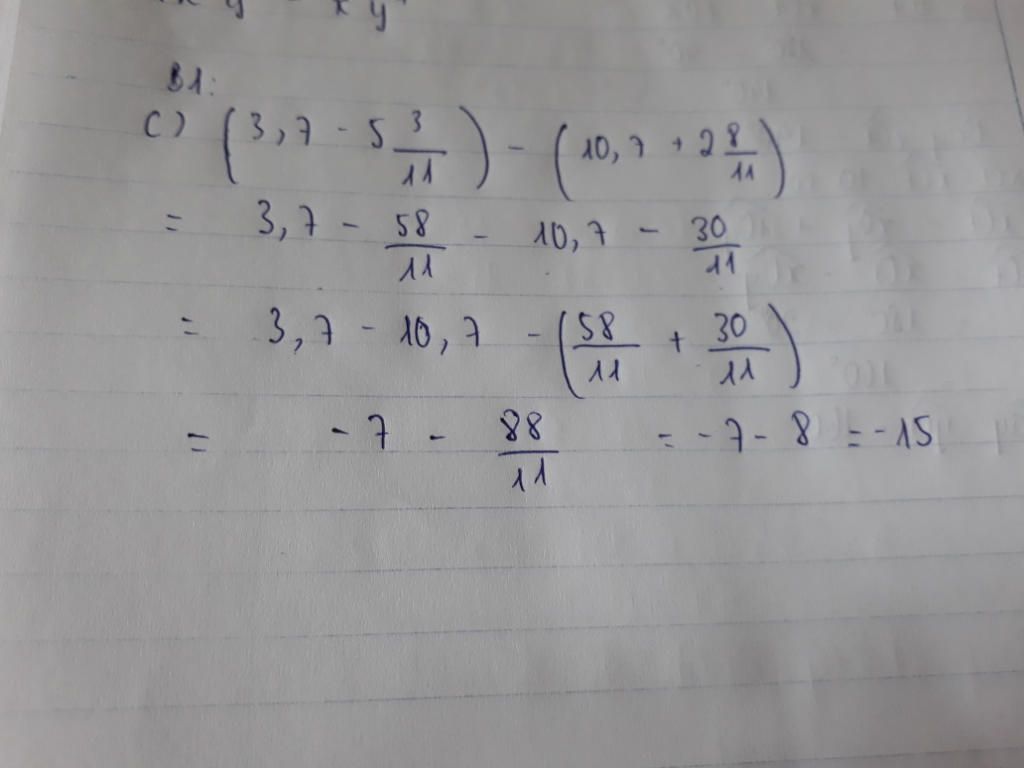 B1:
c) (3,7 - 5 3/11) - (10,7 + 2 8/11)
= 3,7 - 58/11 - 10,7 - 30/11
= 3,7 - 10,7 - (58/11 + 30/11)
= -7 - 88/11 = -7 - 8 = -15